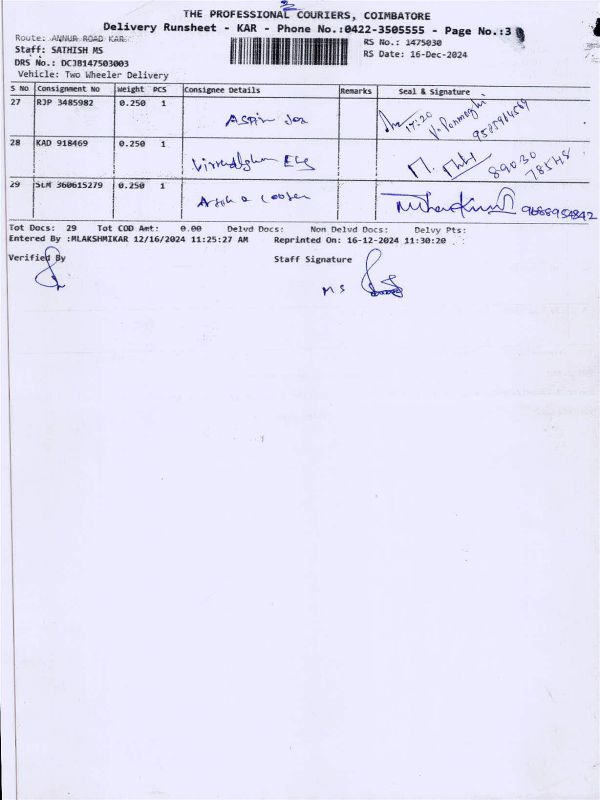 THE PROFESSIONAL COURIERS, COIMBATORE
Delivery Runsheet - KAR - Phone No.:0422-3505555 - Page No.:3
Route: ANNUR ROAD KAR
RS No.: 1475030
Staff: SATHISH MS
RS Date: 16-Dec-2024
DRS No.: DCJB147503003
Vehicle: Two Wheeler Delivery
S No Consignment No Weight PCS Consignee Details Remarks Seal & Signature
27 RJP 3485982 0.250 1
17:20
28 KAD 918469 0.250 1
89030
29 SLM 360615279 0.250 1
9688954842
Tot Docs: 29 Tot COD Amt: 0.00 Delvd Docs: Non Delvd Docs: Delvy Pts:
Entered By :MLAKSHMIKAR 12/16/2024 11:25:27 AM Reprinted On: 16-12-2024 11:30:20
Verified By Staff Signature
MS